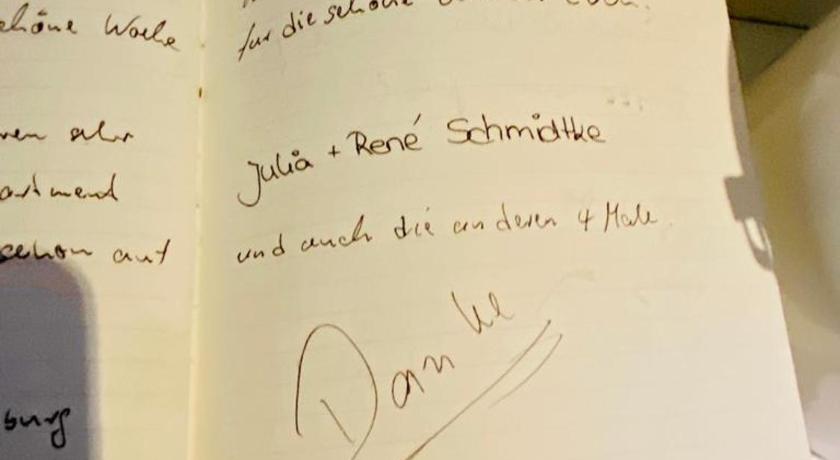 schöne Woche
schon auf
burg
für die schöne
Julia + René Schmidtke
und auch die anderen 4 Male
Danke